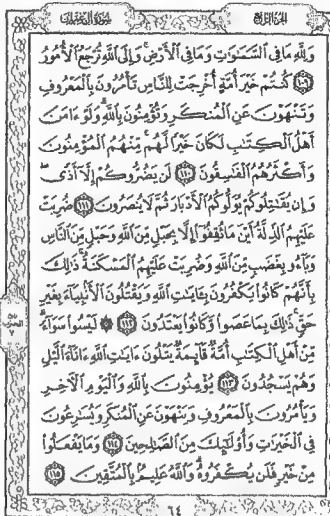 الجزء الرابع سورة آل عمران
وَلِلَّهِ مَا فِي السَّمَٰوَٰتِ وَمَا فِي الْأَرْضِ وَإِلَى اللَّهِ تُرْجَعُ الْأُمُورُ
١٠٩ كُنتُمْ خَيْرَ أُمَّةٍ أُخْرِجَتْ لِلنَّاسِ تَأْمُرُونَ بِالْمَعْرُوفِ
وَتَنْهَوْنَ عَنِ الْمُنكَرِ وَتُؤْمِنُونَ بِاللَّهِ وَلَوْ ءَامَنَ
أَهْلُ الْكِتَٰبِ لَكَانَ خَيْرًا لَّهُم مِّنْهُمُ الْمُؤْمِنُونَ
وَأَكْثَرُهُمُ الْفَٰسِقُونَ ١١٠ لَن يَضُرُّوكُمْ إِلَّا أَذًى
وَإِن يُقَٰتِلُوكُمْ يُوَلُّوكُمُ الْأَدْبَارَ ثُمَّ لَا يُنصَرُونَ ١١١ ضُرِبَتْ
عَلَيْهِمُ الذِّلَّةُ أَيْنَ مَا ثُقِفُوا إِلَّا بِحَبْلٍ مِّنَ اللَّهِ وَحَبْلٍ مِّنَ النَّاسِ
وَبَاءُو بِغَضَبٍ مِّنَ اللَّهِ وَضُرِبَتْ عَلَيْهِمُ الْمَسْكَنَةُ ذَٰلِكَ
بِأَنَّهُمْ كَانُوا يَكْفُرُونَ بِـَٔايَٰتِ اللَّهِ وَيَقْتُلُونَ الْأَنۢبِيَاءَ بِغَيْرِ
حَقٍّ ذَٰلِكَ بِمَا عَصَوا وَّكَانُوا يَعْتَدُونَ ١١٢ ۞ لَيْسُوا سَوَاءً
مِّنْ أَهْلِ الْكِتَٰبِ أُمَّةٌ قَائِمَةٌ يَتْلُونَ ءَايَٰتِ اللَّهِ ءَانَاءَ الَّيْلِ
وَهُمْ يَسْجُدُونَ ١١٣ يُؤْمِنُونَ بِاللَّهِ وَالْيَوْمِ الْءَاخِرِ
وَيَأْمُرُونَ بِالْمَعْرُوفِ وَيَنْهَوْنَ عَنِ الْمُنكَرِ وَيُسَٰرِعُونَ
فِي الْخَيْرَٰتِ وَأُولَٰئِكَ مِنَ الصَّٰلِحِينَ ١١٤ وَمَا يَفْعَلُوا
مِنْ خَيْرٍ فَلَن يُكْفَرُوهُ وَاللَّهُ عَلِيمٌۢ بِالْمُتَّقِينَ ١١٥
٦٤